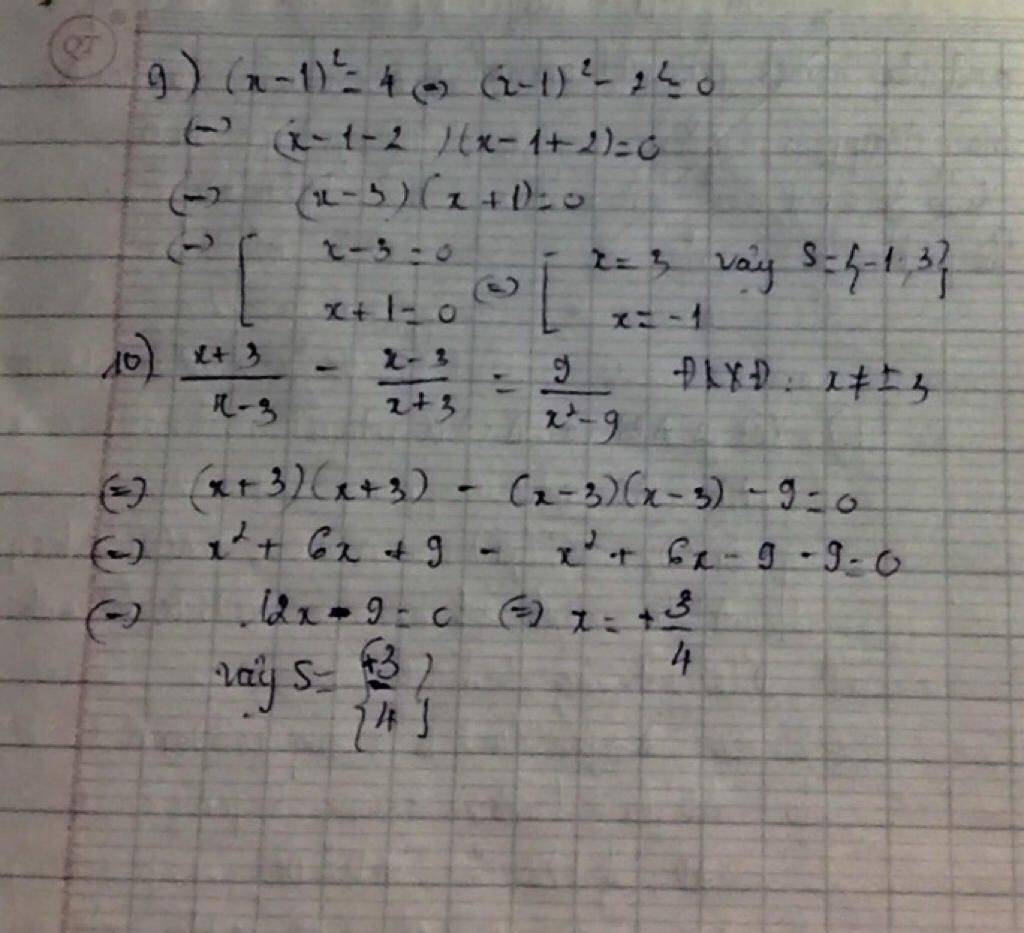 9) (x-1)² = 4 <=> (x-1)² - 2² = 0
<=> (x-1-2)(x-1+2)=0
<=> (x-3)(x+1)=0
<=> [ x-3=0 <=> [ x=3 vậy S={-1;3}
x+1=0 x=-1
10) (x+3)/(x-3) - (x-3)/(x+3) = 9/(x²-9) ĐKXĐ: x≠±3
<=> (x+3)(x+3) - (x-3)(x-3) - 9 = 0
<=> x² + 6x + 9 - x² + 6x - 9 - 9 = 0
<=> 12x - 9 = 0 <=> x = +3/4
vậy S= {+3/4}